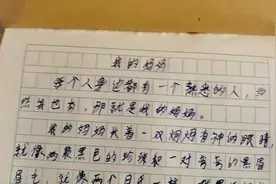 我的妈妈
每个人身边都有一个熟悉的人,当
然我也有,那就是我的妈妈。
我的妈妈长着一双炯炯有神的眼睛,
就像两颗黑色的
一对弯弯的黑眉
就像两个月